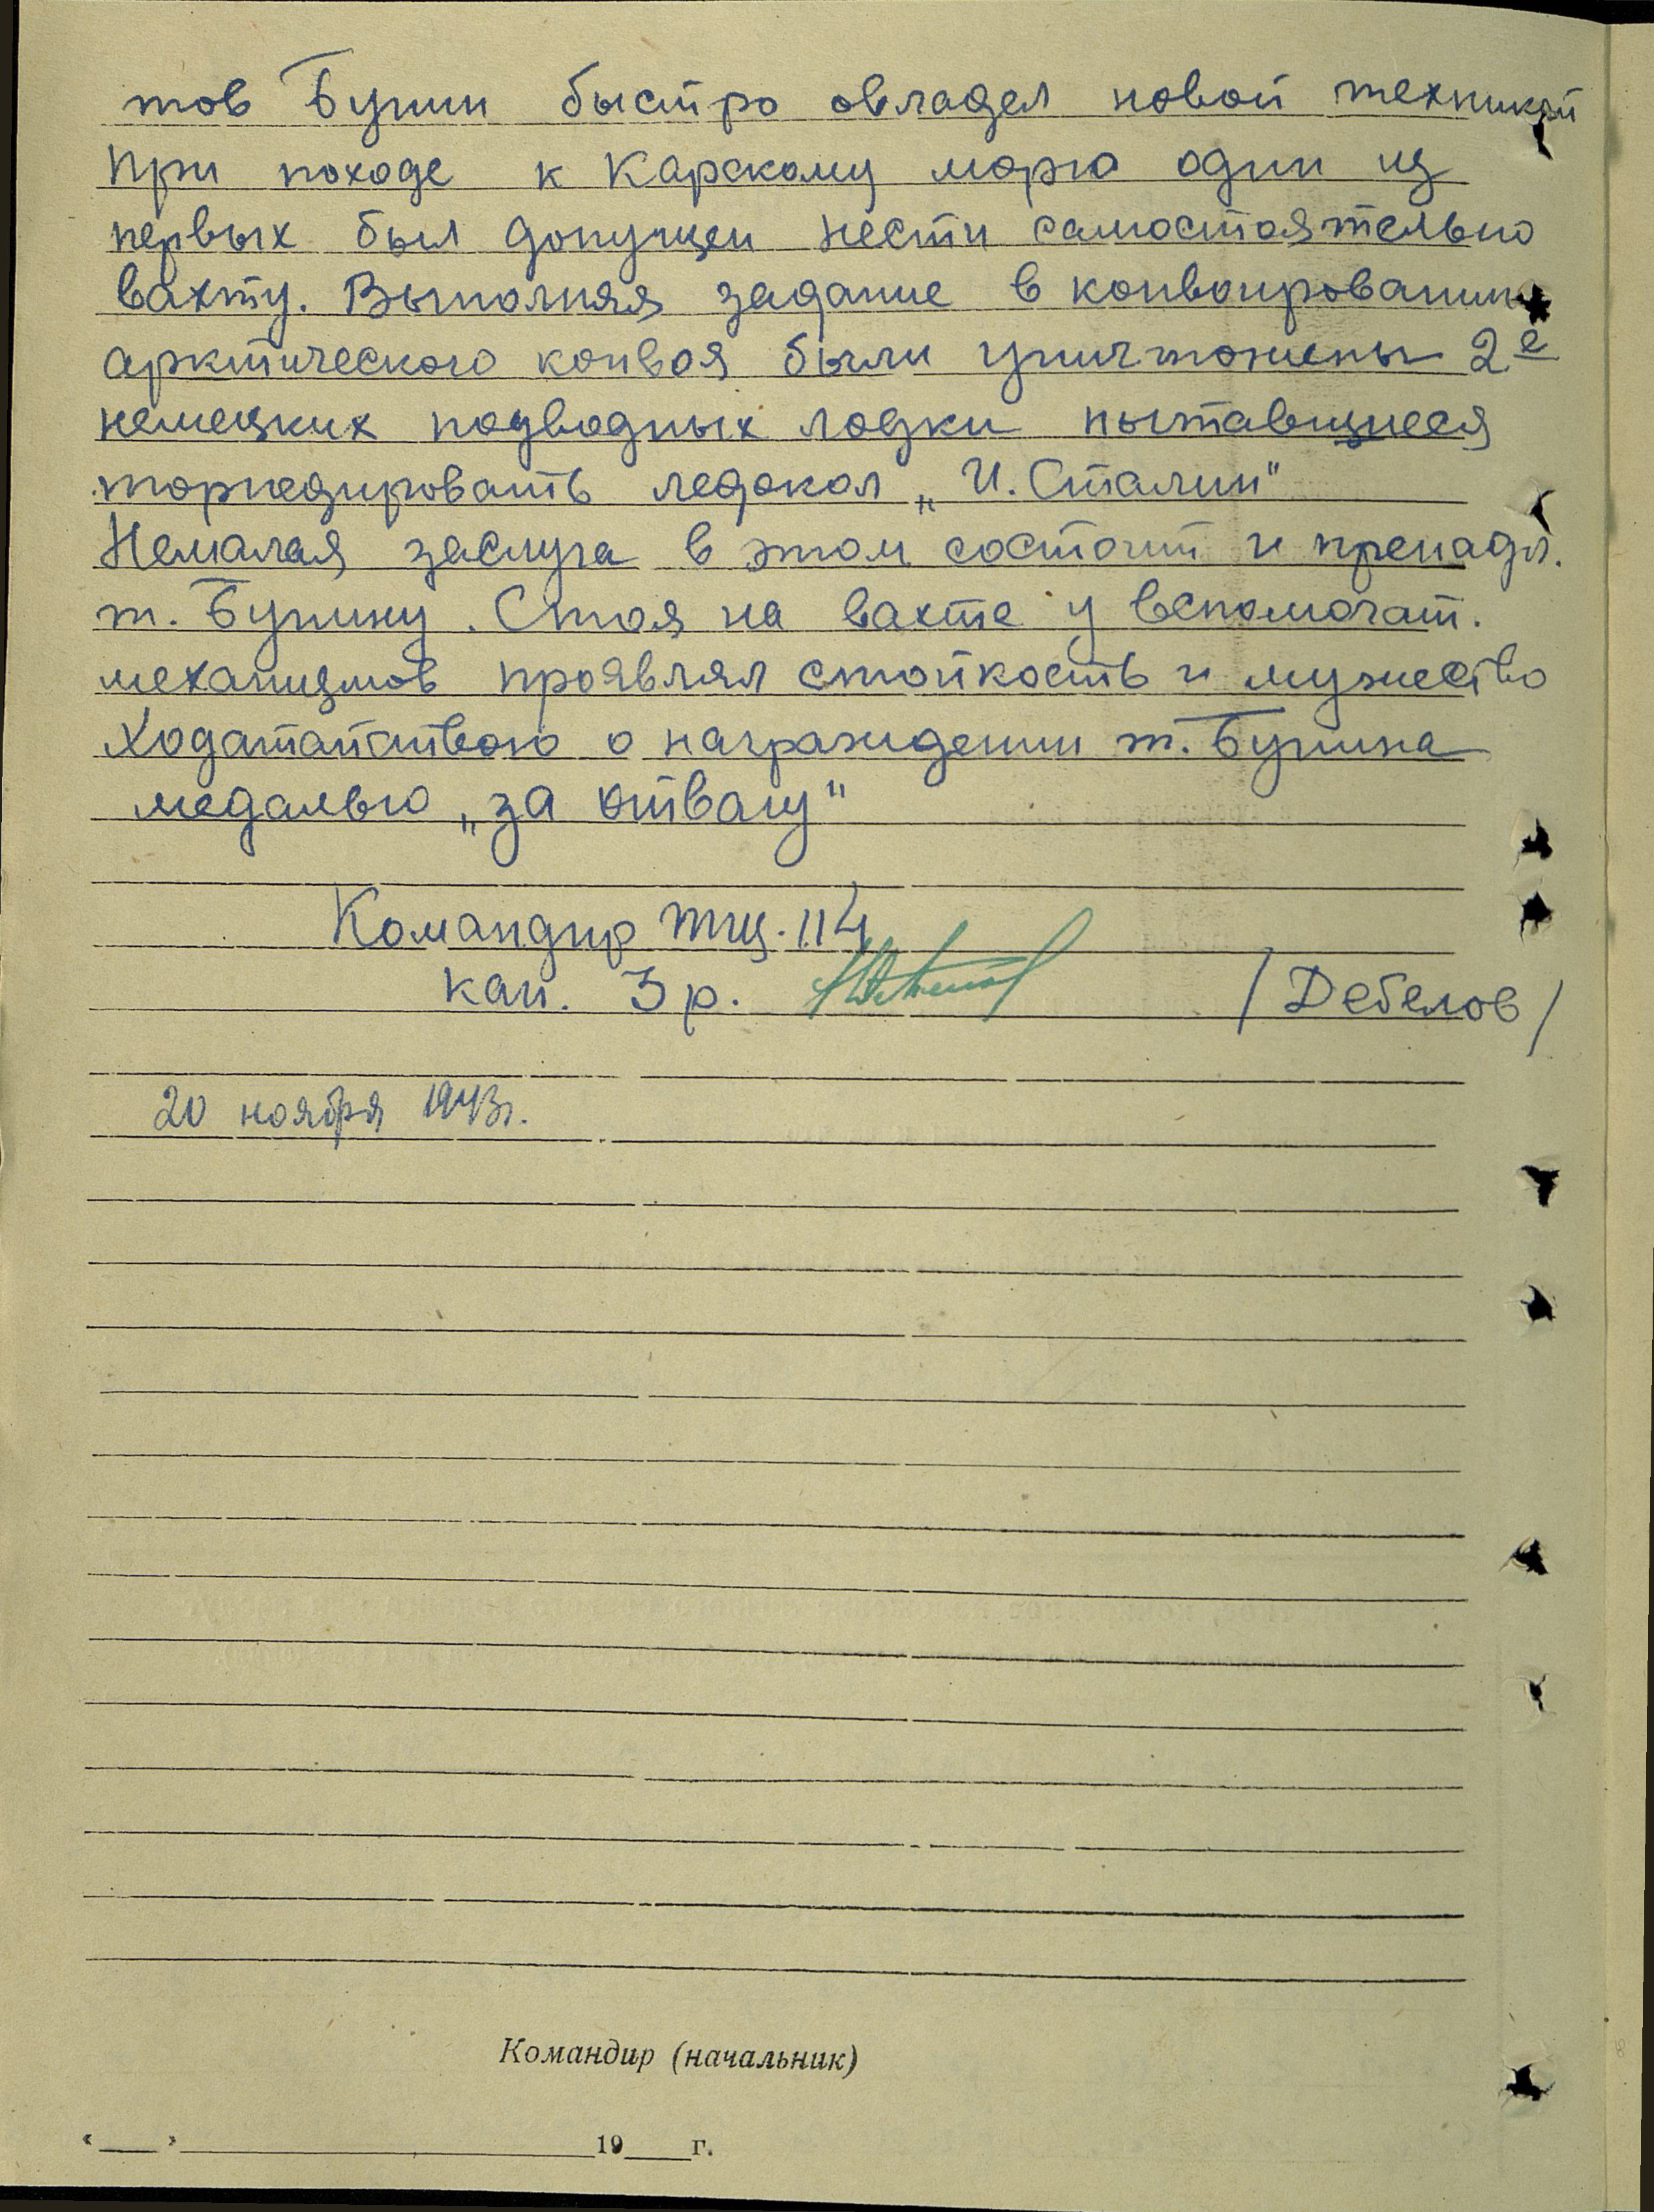 тов Бунин быстро овладел новой техникой
При походе к Карскому морю один из
первых был допущен нести самостоятельно
вахту. Выполняя задание в конвоировании
арктического конвоя были уничтожены 2е
немецких подводных лодки пытавшиеся
торпедировать ледокол „И. Сталин"
Немалая заслуга в этом состоит и пренадл.
т. Бунину. Стоя на вахте у вспомогат.
механизмов проявлял стойкость и мужество
Ходатайствою о награждении т. Бунина
медалью „за отвагу"
Командир тщ. 114
кап. 3 р. /Дебелов/
20 ноября 1943г.
Командир (начальник)
«___»___19___г.